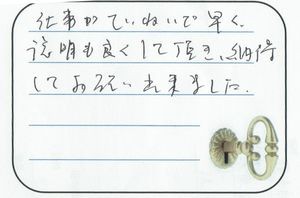 仕事がていねいで早く、
説明も良くして頂き、納得
しておねがい出来ました。